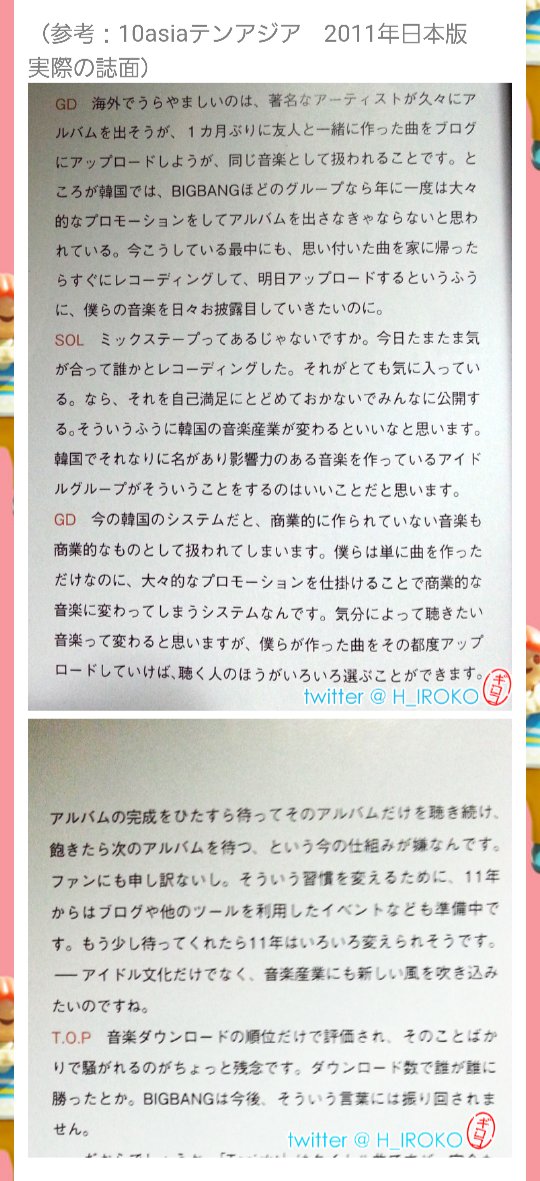 （参考：10asiaテンアジア　2011年日本版
実際の誌面）
GD　海外でうらやましいのは、著名なアーティストが久々にア
ルバムを出そうが、１カ月ぶりに友人と一緒に作った曲をブログ
にアップロードしようが、同じ音楽として扱われることです。と
ころが韓国では、BIGBANGほどのグループなら年に一度は大々
的なプロモーションをしてアルバムを出さなきゃならないと思わ
れている。今こうしている最中にも、思い付いた曲を家に帰った
らすぐにレコーディングして、明日アップロードするというふう
に、僕らの音楽を日々お披露目していきたいのに。
SOL　ミックステープってあるじゃないですか。今日たまたま気
が合って誰かとレコーディングした。それがとても気に入ってい
る。なら、それを自己満足にとどめておかないでみんなに公開す
る。そういうふうに韓国の音楽産業が変わるといいなと思います。
韓国でそれなりに名があり影響力のある音楽を作っているアイド
ルグループがそういうことをするのはいいことだと思います。
GD　今の韓国のシステムだと、商業的に作られていない音楽も
商業的なものとして扱われてしまいます。僕らは単に曲を作った
だけなのに、大々的なプロモーションを仕掛けることで商業的な
音楽に変わってしまうシステムなんです。気分によって聴きたい
音楽って変わると思いますが、僕らが作った曲をその都度アップ
ロードしていけば、聴く人のほうがいろいろ選ぶことができます。
twitter @ H_IROKO
アルバムの完成をひたすら待ってそのアルバムだけを聴き続け、
飽きたら次のアルバムを待つ、という今の仕組みが嫌なんです。
ファンにも申し訳ないし。そういう習慣を変えるために、11年
からはブログや他のツールを利用したイベントなども準備中で
す。もう少し待ってくれたら11年はいろいろ変えられそうです。
── アイドル文化だけでなく、音楽産業にも新しい風を吹き込み
たいのですね。
T.O.P　音楽ダウンロードの順位だけで評価され、そのことばか
りで騒がれるのがちょっと残念です。ダウンロード数で誰が誰に
勝ったとか。BIGBANGは今後、そういう言葉には振り回されま
せん。
twitter @ H_IROKO